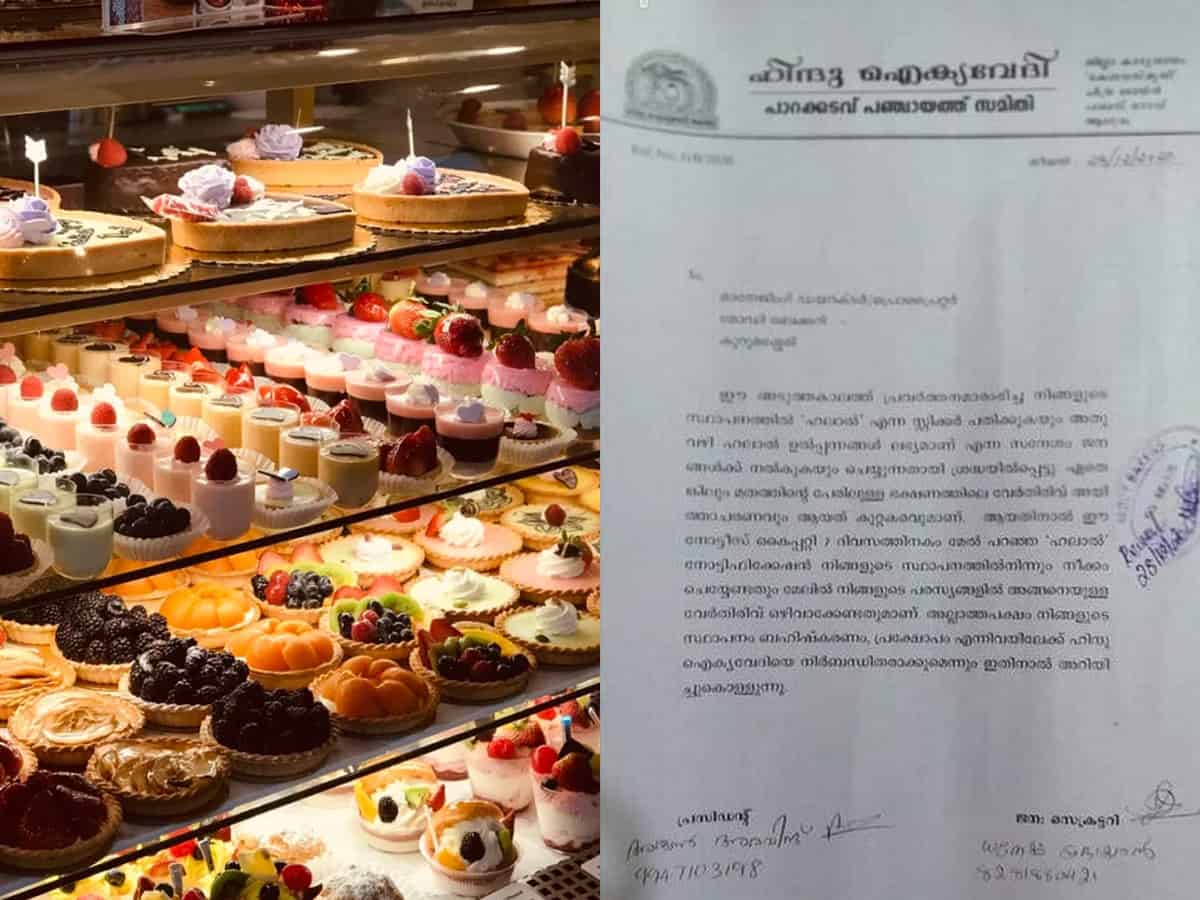 ഹിന്ദു ഐക്യവേദി
പാറക്കടവ് പഞ്ചായത്ത് സമിതി
തീയതി 28/12/2020
To,
മാനേജിംഗ് ഡയറക്ടർ/പ്രൊപ്രൈറ്റർ
മോദി ബേക്കറി
കുറുമശ്ശേരി
ഈ അടുത്തകാലത്ത് പ്രവർത്തനമാരംഭിച്ച നിങ്ങളുടെ
സ്ഥാപനത്തിൽ 'ഹലാൽ' എന്ന സ്റ്റിക്കർ പതിക്കുകയും അതു
വഴി ഹലാൽ ഉൽപ്പന്നങ്ങൾ ലഭ്യമാണ് എന്ന സന്ദേശം ജന
ങ്ങൾക്ക് നൽകുകയും ചെയ്യുന്നതായി ശ്രദ്ധയിൽപ്പെട്ടു. ഏതെ
ങ്കിലും മതത്തിന്റെ പേരിലുള്ള ഭക്ഷണത്തിലെ വേർതിരിവ് അയി
ത്താചരണവും ആയത് കുറ്റകരവുമാണ്. ആയതിനാൽ ഈ
നോട്ടീസ് കൈപ്പറ്റി 7 ദിവസത്തിനകം മേൽ പറഞ്ഞ 'ഹലാൽ'
നോട്ടിഫിക്കേഷൻ നിങ്ങളുടെ സ്ഥാപനത്തിൽനിന്നും നീക്കം
ചെയ്യേണ്ടതും മേലിൽ നിങ്ങളുടെ പരസ്യങ്ങളിൽ അങ്ങനെയുള്ള
വേർതിരിവ് ഒഴിവാക്കേണ്ടതുമാണ്. അല്ലാത്തപക്ഷം നിങ്ങളുടെ
സ്ഥാപനം ബഹിഷ്കരണം, പ്രക്ഷോപം എന്നിവയിലേക്ക് ഹിന്ദു
ഐക്യവേദിയെ നിർബന്ധിതരാക്കുമെന്നും ഇതിനാൽ അറിയി
ച്ചുകൊള്ളുന്നു.
പ്രസിഡന്റ്
അരുൺ അരവിന്ദ്
9947103198
ജന: സെക്രട്ടറി
8281880421